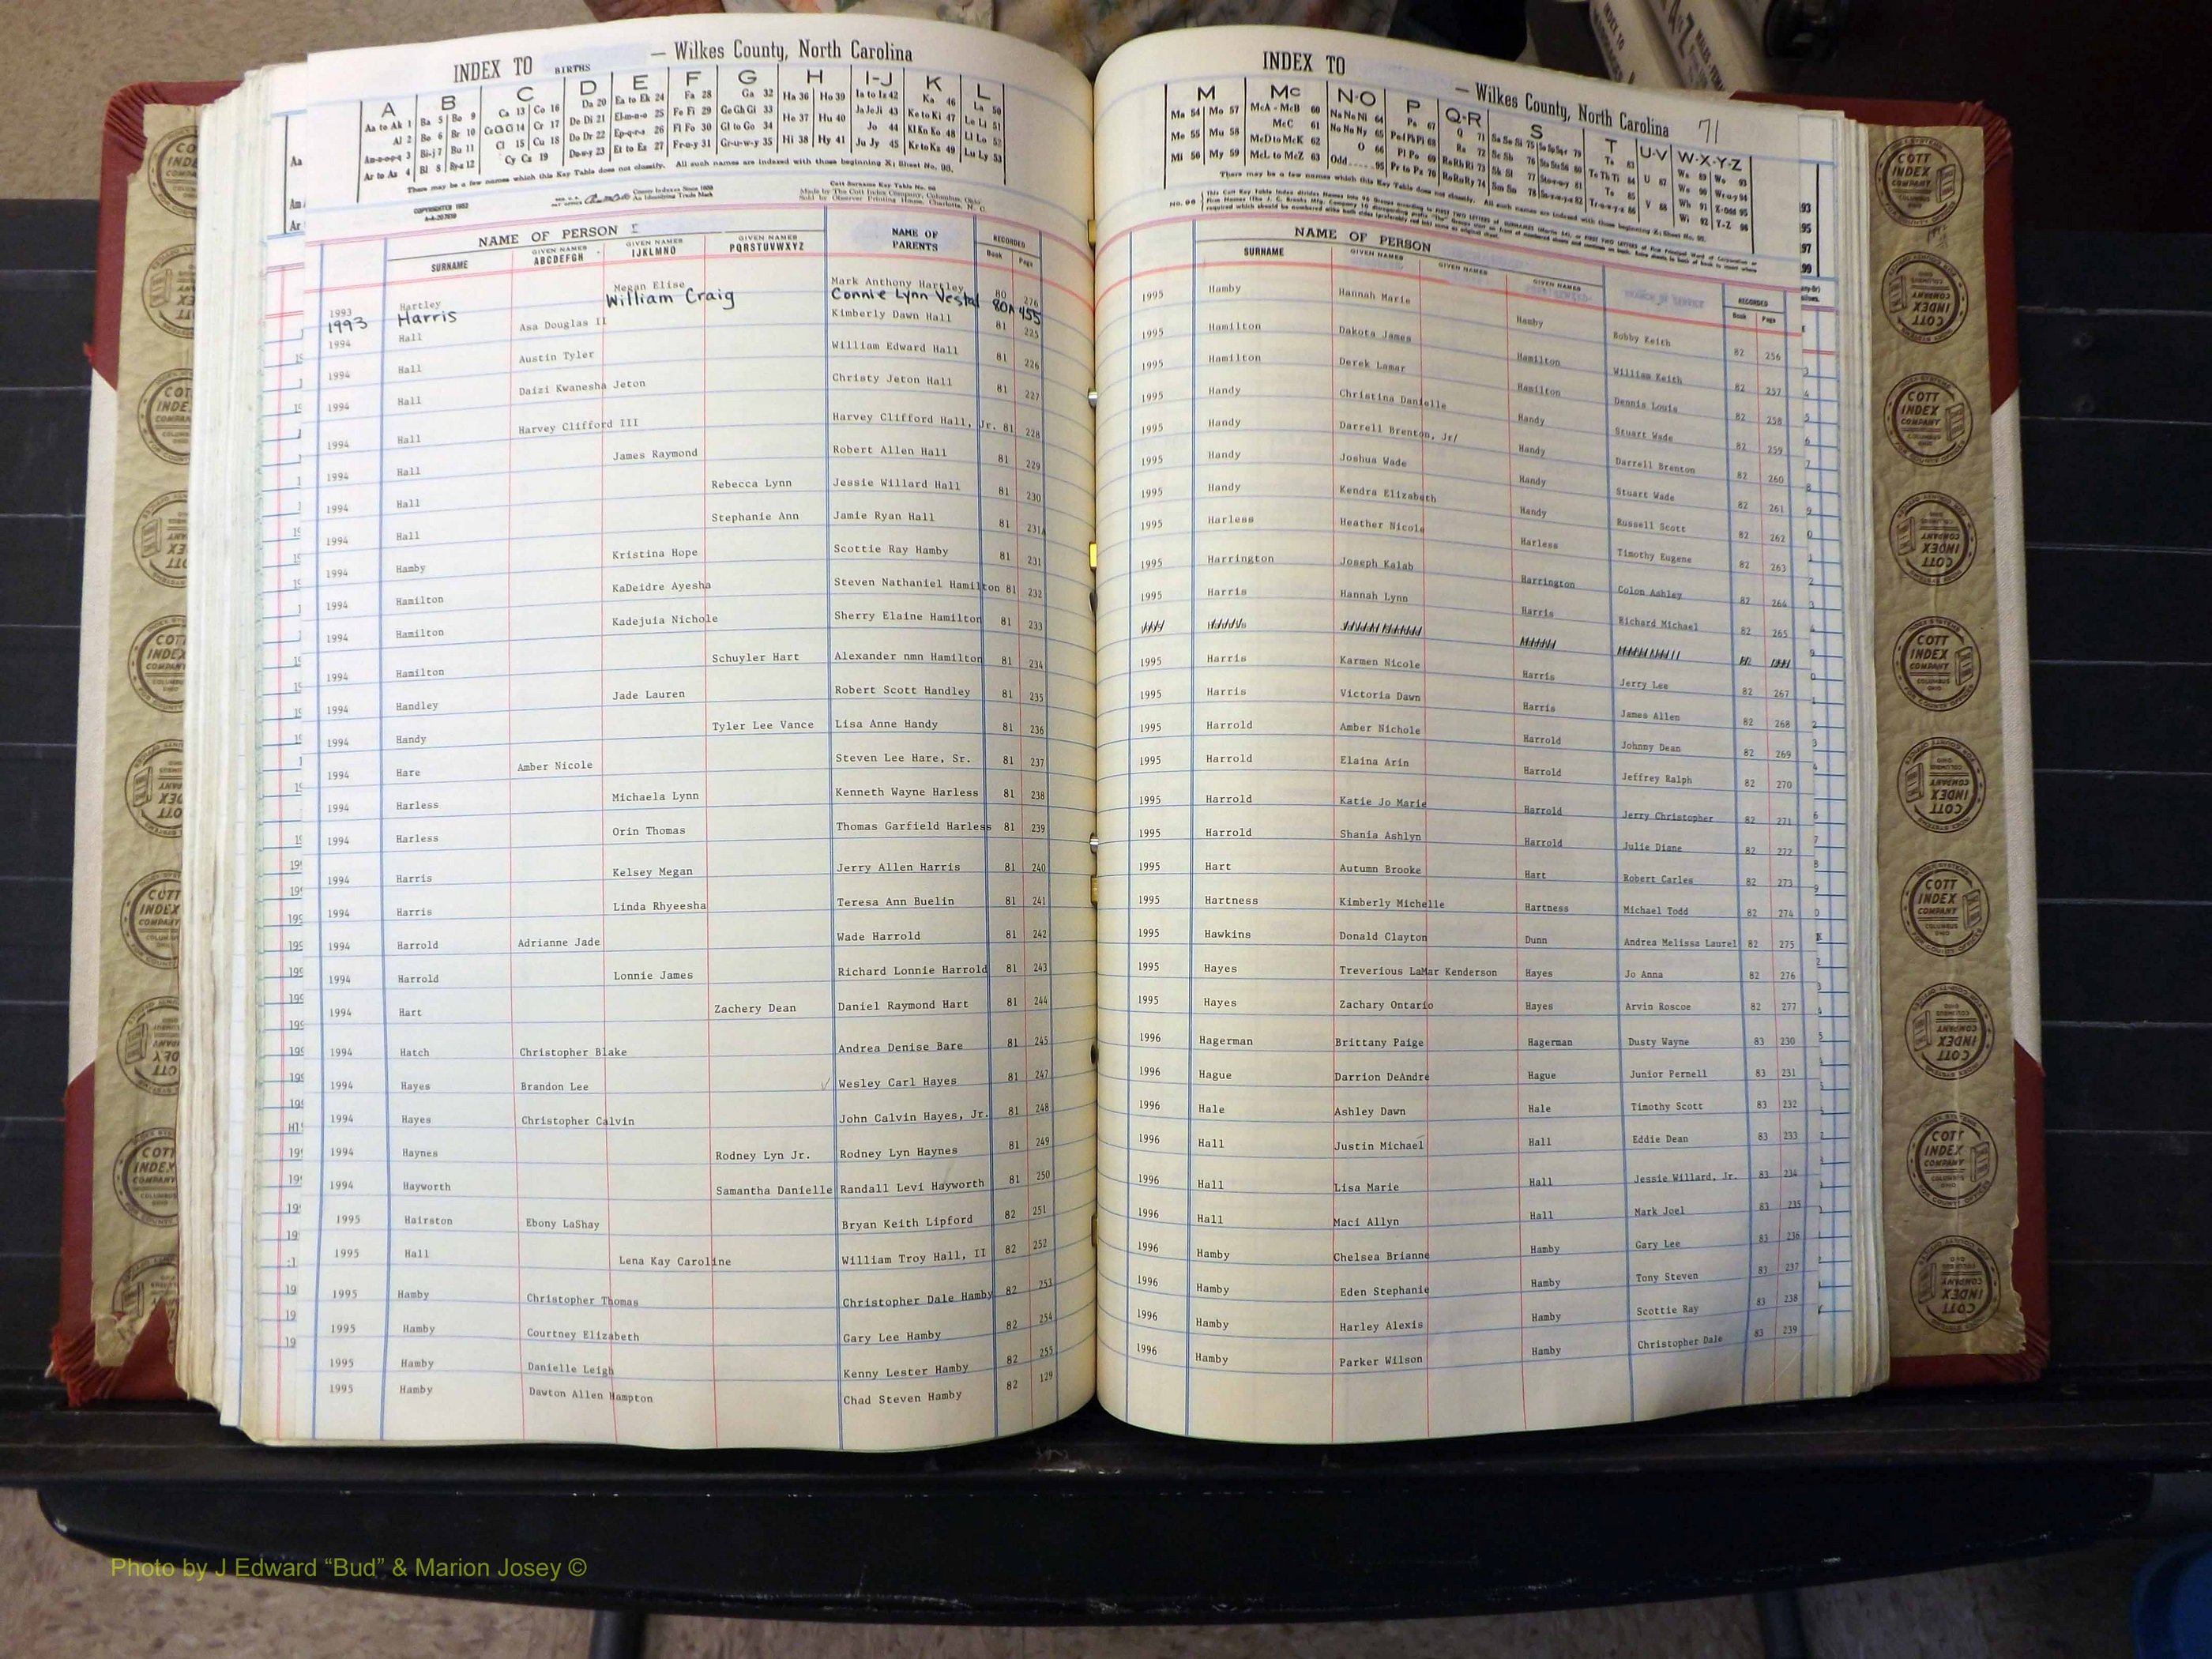 INDEX TO BIRTHS — Wilkes County, North Carolina
A B C D E F G H I-J K L
Aa to Ak 1 Ba 5 Bo 9 Ca 13 Co 16 Da 20 Ea to Ek 24 Fa 28 Ga 32 Ha 36 Ho 39 Ia to Iz 42 Ka 46 La 50
Al 2 Be 6 Br 10 Ce Ch Ci 14 Cr 17 De Di 21 El-m-n-o 25 Fe Fi 29 Ge Gh Gi 33 He 37 Hu 40 Ja Je Ji 43 Ke to Ki 47 Le Li 51
Am-n-o-p-q 3 Bi-j 7 Bu 11 Cl 15 Cu 18 Do Dr 22 Ep-q-r-s 26 Fl Fo 30 Gl to Go 34 Hi 38 Hy 41 Jo 44 Kl Kn Ko 48 Ll Lo 52
Ar to Az 4 Bl 8 By-z 12 Cy Cz 19 Du-w-y 23 Et to Ez 27 Fr-u-y 31 Gr-u-w-y 35 Ju Jy 45 Kr to Kz 49 Lu Ly 53
There may be a few names which this Key Table does not classify. All such names are indexed with those beginning X; Sheet No. 95.
NAME OF PERSON
SURNAME GIVEN NAMES ABCDEFGH GIVEN NAMES IJKLMNO GIVEN NAMES PQRSTUVWXYZ NAME OF PARENTS RECORDED Book Page
1993 Hartley Megan Elise Mark Anthony Hartley 80 276
1993 Harris William Craig Connie Lynn Vestal 80A 455
1994 Hall Asa Douglas II Kimberly Dawn Hall 81 225
1994 Hall Austin Tyler William Edward Hall 81 226
1994 Hall Daizi Kwanesha Jeton Christy Jeton Hall 81 227
1994 Hall Harvey Clifford III Harvey Clifford Hall, Jr. 81 228
1994 Hall James Raymond Robert Allen Hall 81 229
1994 Hall Rebecca Lynn Jessie Willard Hall 81 230
1994 Hall Stephanie Ann Jamie Ryan Hall 81 231A
1994 Hamby Kristina Hope Scottie Ray Hamby 81 231
1994 Hamilton KaDeidre Ayesha Steven Nathaniel Hamilton 81 232
1994 Hamilton Kadejuia Nichole Sherry Elaine Hamilton 81 233
1994 Hamilton Schuyler Hart Alexander nmn Hamilton 81 234
1994 Handley Jade Lauren Robert Scott Handley 81 235
1994 Handy Tyler Lee Vance Lisa Anne Handy 81 236
1994 Hare Amber Nicole Steven Lee Hare, Sr. 81 237
1994 Harless Michaela Lynn Kenneth Wayne Harless 81 238
1994 Harless Orin Thomas Thomas Garfield Harless 81 239
1994 Harris Kelsey Megan Jerry Allen Harris 81 240
1994 Harris Linda Rhyeesha Teresa Ann Buelin 81 241
1994 Harrold Adrianne Jade Wade Harrold 81 242
1994 Harrold Lonnie James Richard Lonnie Harrold 81 243
1994 Hart Zachery Dean Daniel Raymond Hart 81 244
1994 Hatch Christopher Blake Andrea Denise Bare 81 245
1994 Hayes Brandon Lee ✓ Wesley Carl Hayes 81 247
1994 Hayes Christopher Calvin John Calvin Hayes, Jr. 81 248
1994 Haynes Rodney Lyn Jr. Rodney Lyn Haynes 81 249
1994 Hayworth Samantha Danielle Randall Levi Hayworth 81 250
1995 Hairston Ebony LaShay Bryan Keith Lipford 82 251
1995 Hall Lena Kay Caroline William Troy Hall, II 82 252
1995 Hamby Christopher Thomas Christopher Dale Hamby 82 253
1995 Hamby Courtney Elizabeth Gary Lee Hamby 82 254
1995 Hamby Danielle Leigh Kenny Lester Hamby 82 255
1995 Hamby Dawton Allen Hampton Chad Steven Hamby 82 129
INDEX TO — Wilkes County, North Carolina 71
M Mc N-O P Q-R S T U-V W-X-Y-Z
There may be a few names which this Key Table does not classify. All such names are indexed with those beginning X; Sheet No. 95.
NAME OF PERSON
SURNAME GIVEN NAMES GIVEN NAMES GIVEN NAMES RECORDED Book Page
1995 Hamby Hannah Marie Hamby Bobby Keith 82 256
1995 Hamilton Dakota James Hamilton William Keith 82 257
1995 Hamilton Derek Lamar Hamilton Dennis Louis 82 258
1995 Handy Christina Danielle Handy Stuart Wade 82 259
1995 Handy Darrell Brenton, Jr/ Handy Darrell Brenton 82 260
1995 Handy Joshua Wade Handy Stuart Wade 82 261
1995 Handy Kendra Elizabeth Handy Russell Scott 82 262
1995 Harless Heather Nicole Harless Timothy Eugene 82 263
1995 Harrington Joseph Kalab Harrington Colon Ashley 82 264
1995 Harris Hannah Lynn Harris Richard Michael 82 265
1995 Harris Karmen Nicole Harris Jerry Lee 82 267
1995 Harris Victoria Dawn Harris James Allen 82 268
1995 Harrold Amber Nichole Harrold Johnny Dean 82 269
1995 Harrold Elaina Arin Harrold Jeffrey Ralph 82 270
1995 Harrold Katie Jo Marie Harrold Jerry Christopher 82 271
1995 Harrold Shania Ashlyn Harrold Julie Diane 82 272
1995 Hart Autumn Brooke Hart Robert Carles 82 273
1995 Hartness Kimberly Michelle Hartness Michael Todd 82 274
1995 Hawkins Donald Clayton Dunn Andrea Melissa Laurel 82 275
1995 Hayes Treverious LaMar Kenderson Hayes Jo Anna 82 276
1995 Hayes Zachary Ontario Hayes Arvin Roscoe 82 277
1996 Hagerman Brittany Paige Hagerman Dusty Wayne 83 230
1996 Hague Darrion DeAndre Hague Junior Pernell 83 231
1996 Hale Ashley Dawn Hale Timothy Scott 83 232
1996 Hall Justin Michael Hall Eddie Dean 83 233
1996 Hall Lisa Marie Hall Jessie Willard, Jr. 83 234
1996 Hall Maci Allyn Hall Mark Joel 83 235
1996 Hamby Chelsea Brianne Hamby Gary Lee 83 236
1996 Hamby Eden Stephanie Hamby Tony Steven 83 237
1996 Hamby Harley Alexis Hamby Scottie Ray 83 238
1996 Hamby Parker Wilson Hamby Christopher Dale 83 239
COTT INDEX COMPANY
Photo by J Edward “Bud” & Marion Josey ©